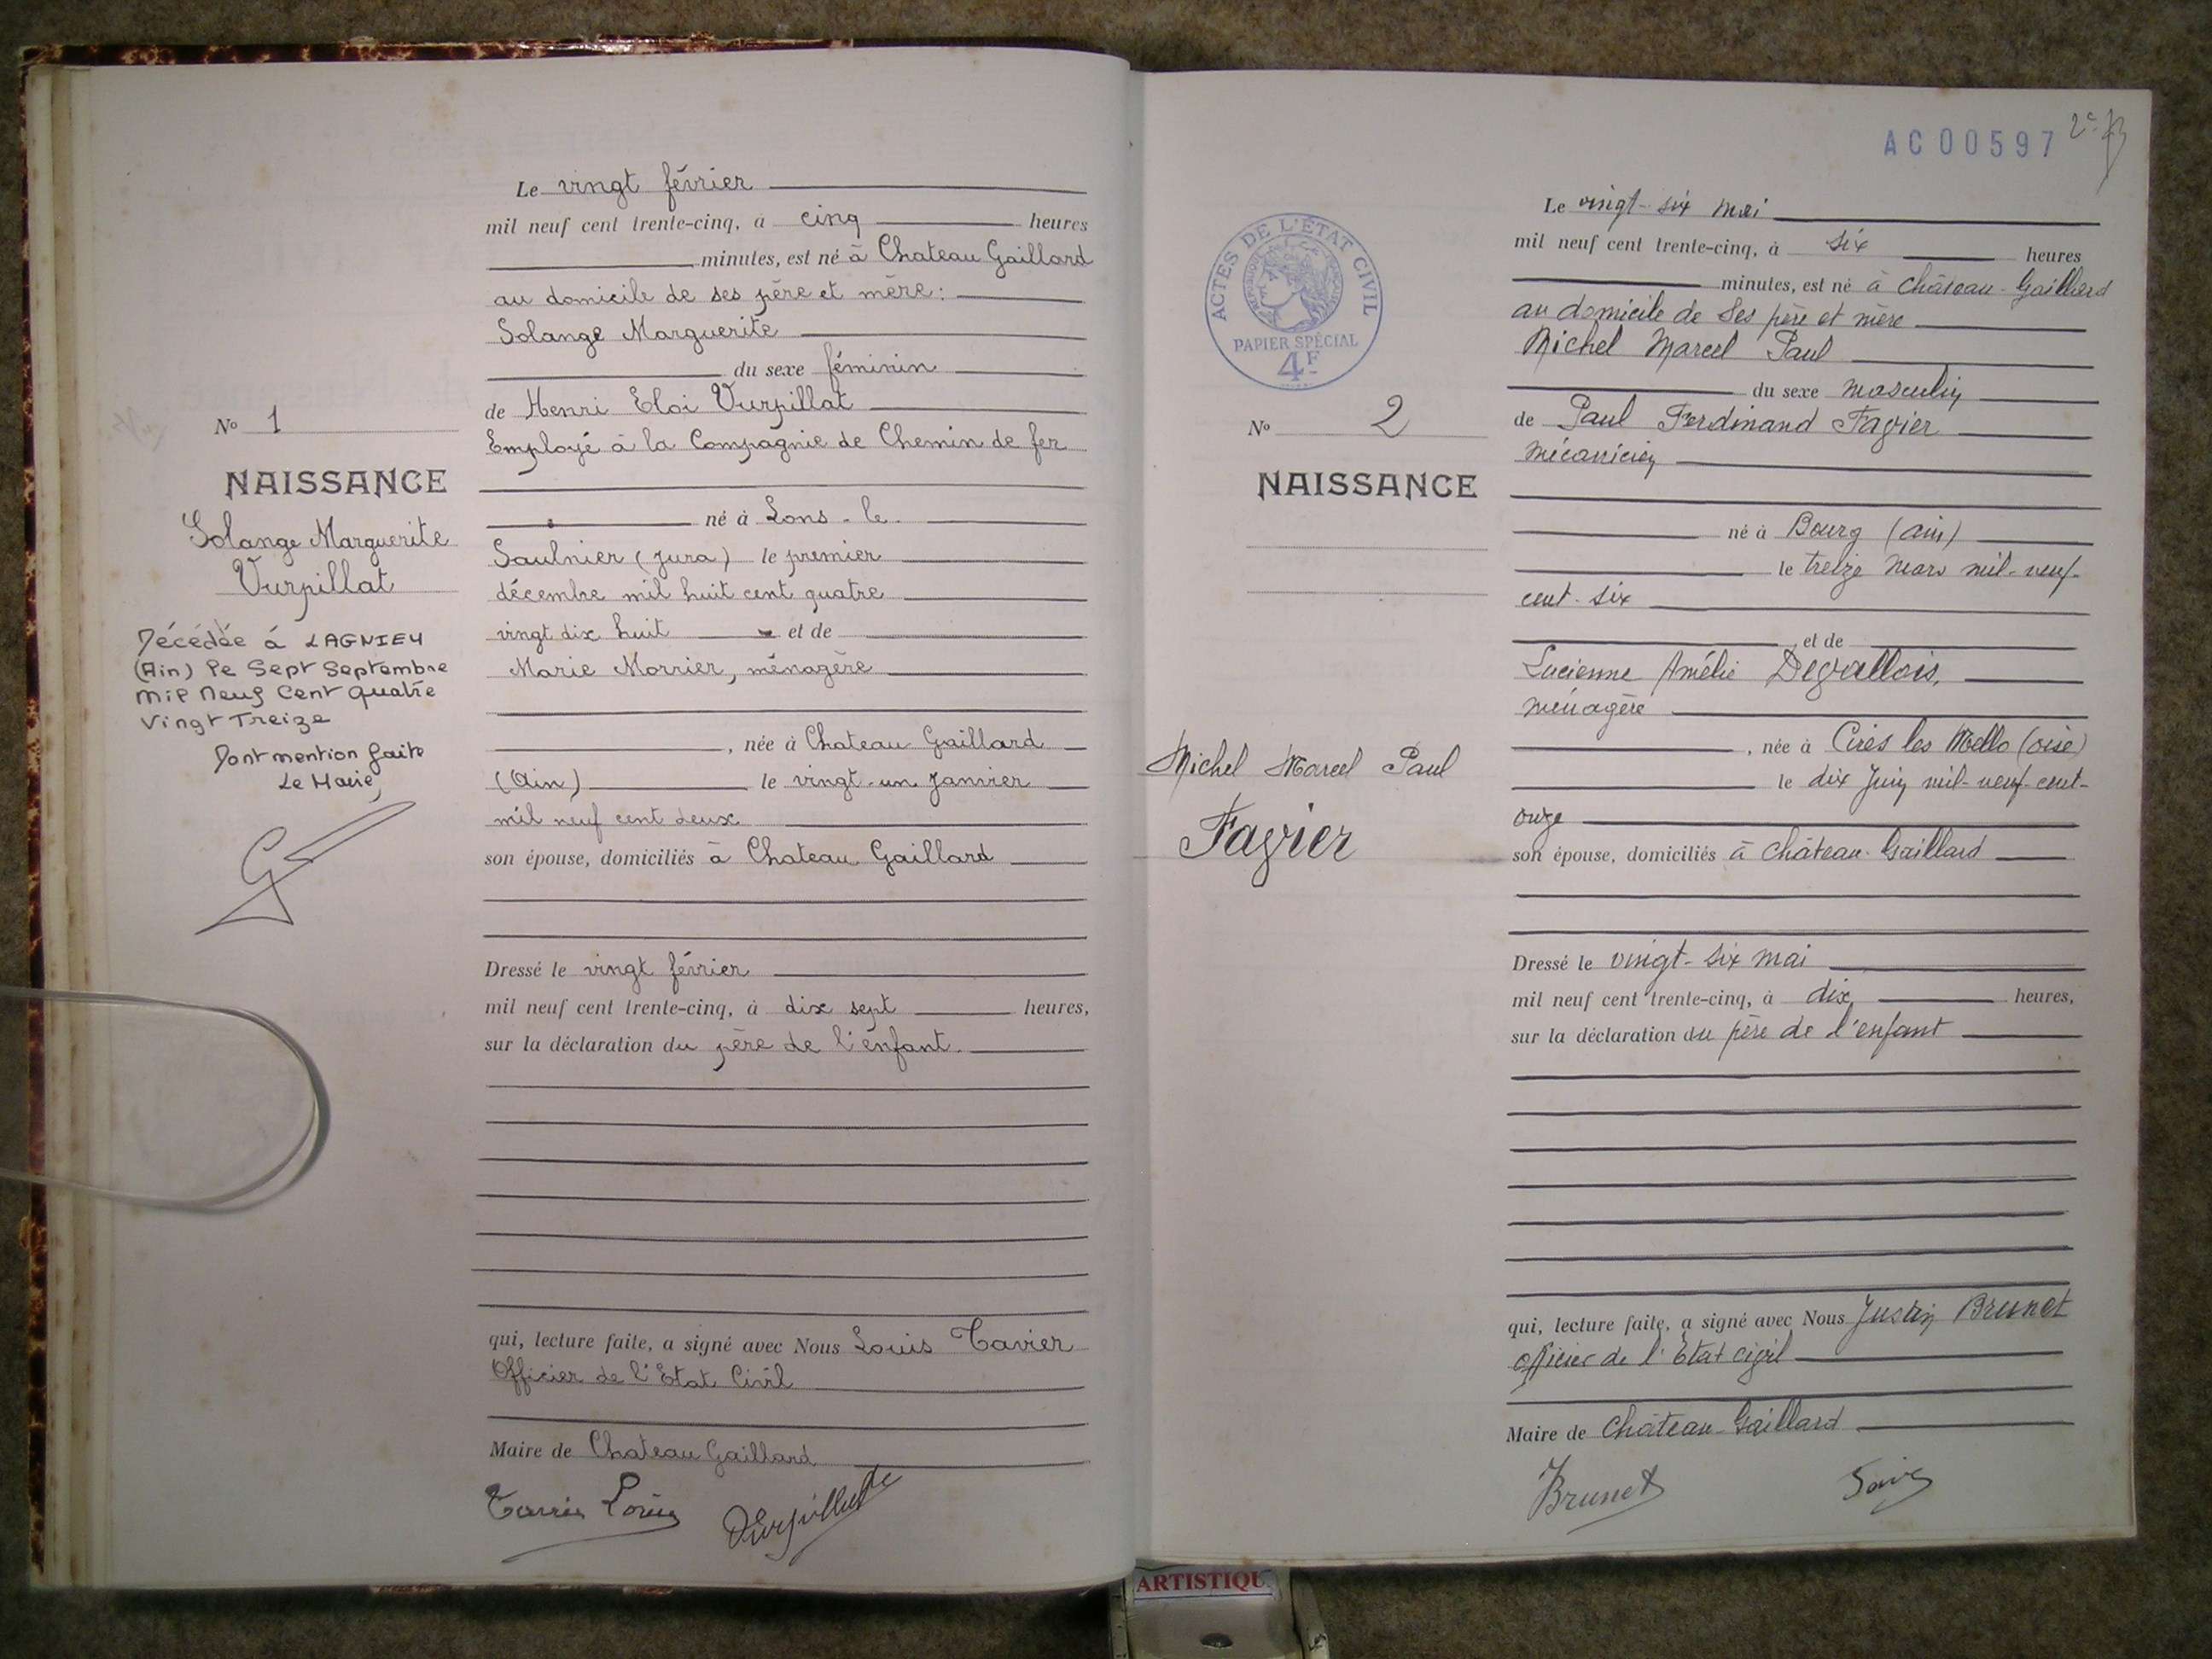 Le vingt février
mil neuf cent trente-cinq, à cinq heures
minutes, est né à Chateau Gaillard
au domicile de ses père et mère:
Solange Marguerite
du sexe féminin
de Henri Eloi Vurpillat
Employé à la Compagnie de Chemin de fer
né à Lons-le-
Saulnier (Jura) le premier
décembre mil huit cent quatre
vingt dix huit et de
Marie Morrier, ménagère
, née à Chateau Gaillard
(Ain) le vingt-un Janvier
mil neuf cent deux
son épouse, domiciliés à Chateau Gaillard
Dressé le vingt février
mil neuf cent trente-cinq, à dix sept heures,
sur la déclaration du père de l'enfant.
qui, lecture faite, a signé avec Nous Louis Tavier
Officier de l'Etat Civil
Maire de Chateau Gaillard
No 1
NAISSANCE
Solange Marguerite
Vurpillat
Décédée à LAGNIEU
(Ain) le Sept Septembre
mil neuf Cent quatre
Vingt Treize
Dont mention faite
Le Maire,
AC 00597
ACTES DE L'ÉTAT CIVIL
RÉPUBLIQUE FRANÇAISE
PAPIER SPÉCIAL
4F
No 2
NAISSANCE
Michel Marcel Paul
Favier
Le vingt-six mai
mil neuf cent trente-cinq, à six heures
minutes, est né à Château-Gaillard
au domicile de ses père et mère
Michel Marcel Paul
du sexe masculin
de Paul Ferdinand Favier
mécanicien
né à Bourg (Ain)
le treize mars mil-neuf-
cent-six
et de
Lucienne Amélie Devallois,
ménagère
, née à Cires les Mello (oise)
le dix Juin mil-neuf-cent-
onze
son épouse, domiciliés à Château-Gaillard
Dressé le vingt-six mai
mil neuf cent trente-cinq, à dix heures,
sur la déclaration du père de l'enfant
qui, lecture faite, a signé avec Nous Justin Brunet
officier de l'Etat civil
Maire de Château-Gaillard
Brunet
ARTISTIQU